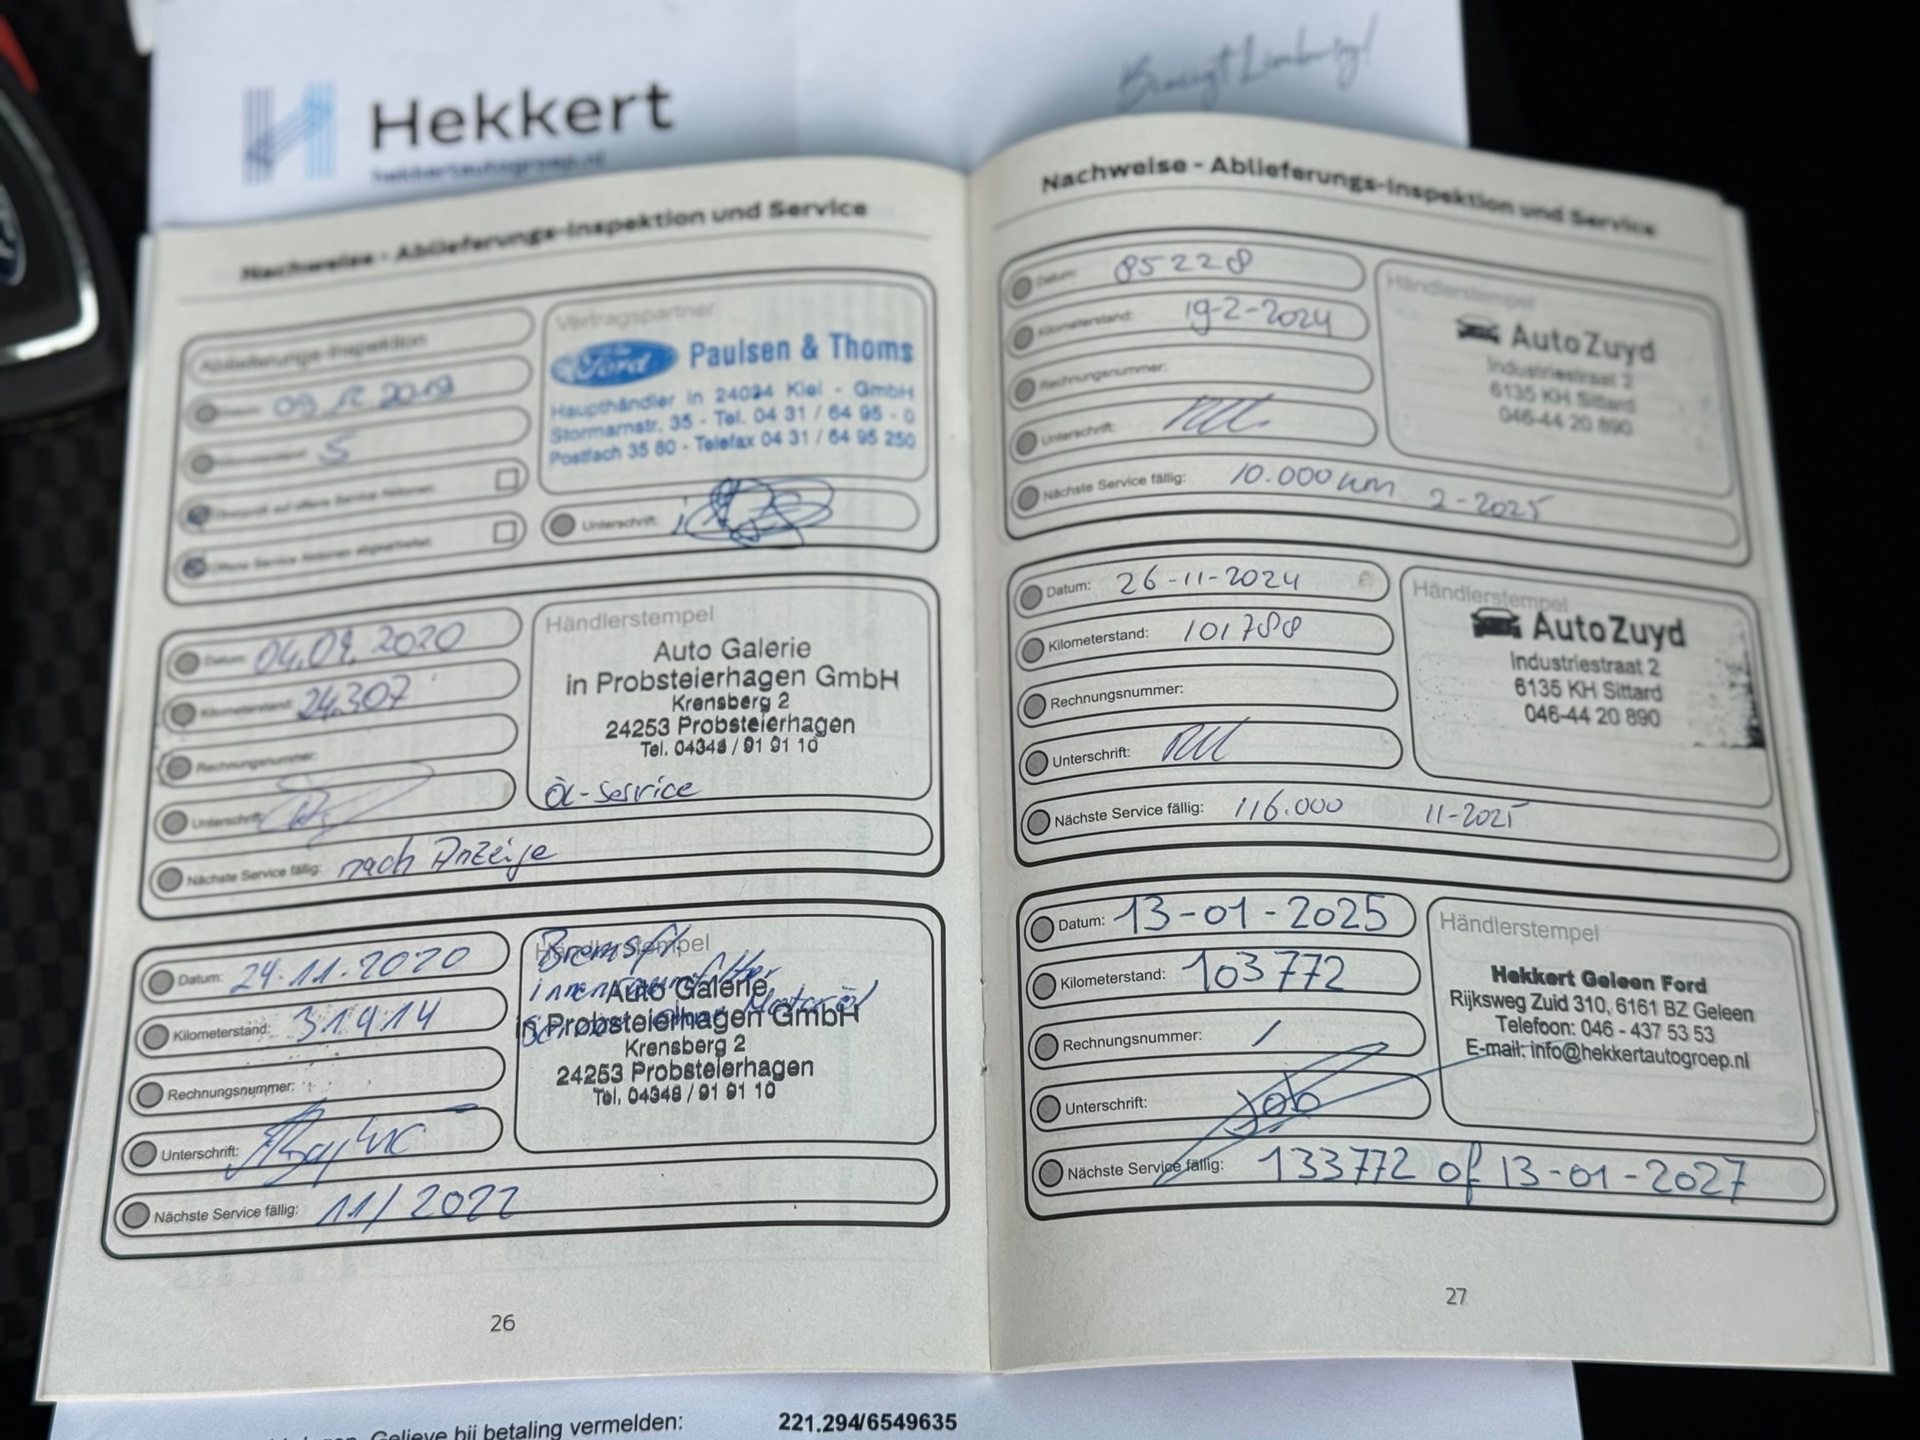 Hekkert
hekkertautogroep.nl
Limburg!
Nachweise - Ablieferungs-Inspektion und Service
Ablieferungs-Inspektion
Datum: 09.12.2019
Kilometerstand: 5
Überprüft auf offene Service Aktionen:
Offene Service Aktionen abgearbeitet:
Vertragspartner
Ford Paulsen & Thoms
Haupthändler in 24034 Kiel - GmbH
Stormarnstr. 35 - Tel. 04 31 / 64 95 - 0
Postfach 35 80 - Telefax 04 31 / 64 95 250
Unterschrift:
Datum: 04.09.2020
Kilometerstand: 24.307
Rechnungsnummer:
Unterschrift:
Nächste Service fällig: nach Anzeige
Händlerstempel
Auto Galerie
in Probsteierhagen GmbH
Krensberg 2
24253 Probsteierhagen
Tel. 04348 / 91 91 10
Öl-Service
Datum: 24.11.2020
Kilometerstand: 31914
Rechnungsnummer:
Unterschrift:
Nächste Service fällig: 11/2022
Händlerstempel
Bremsfl.
Innenraumfilter
Motoröl
Auto Galerie
in Probsteierhagen GmbH
Krensberg 2
24253 Probsteierhagen
Tel. 04348 / 91 91 10
26
Nachweise - Ablieferungs-Inspektion und Service
Datum: 85228
Kilometerstand: 19-2-2024
Rechnungsnummer:
Unterschrift:
Nächste Service fällig: 10.000 km 2-2025
Händlerstempel
AutoZuyd
Industriestraat 2
6135 KH Sittard
046-44 20 890
Datum: 26-11-2024
Kilometerstand: 101788
Rechnungsnummer:
Unterschrift:
Nächste Service fällig: 116.000 11-2025
Händlerstempel
AutoZuyd
Industriestraat 2
6135 KH Sittard
046-44 20 890
Datum: 13-01-2025
Kilometerstand: 103772
Rechnungsnummer: /
Unterschrift: Job
Nächste Service fällig: 133772 of 13-01-2027
Händlerstempel
Hekkert Geleen Ford
Rijksweg Zuid 310, 6161 BZ Geleen
Telefoon: 046 - 437 53 53
E-mail: info@hekkertautogroep.nl
27
Gelieve bij betaling vermelden: 221.294/6549635